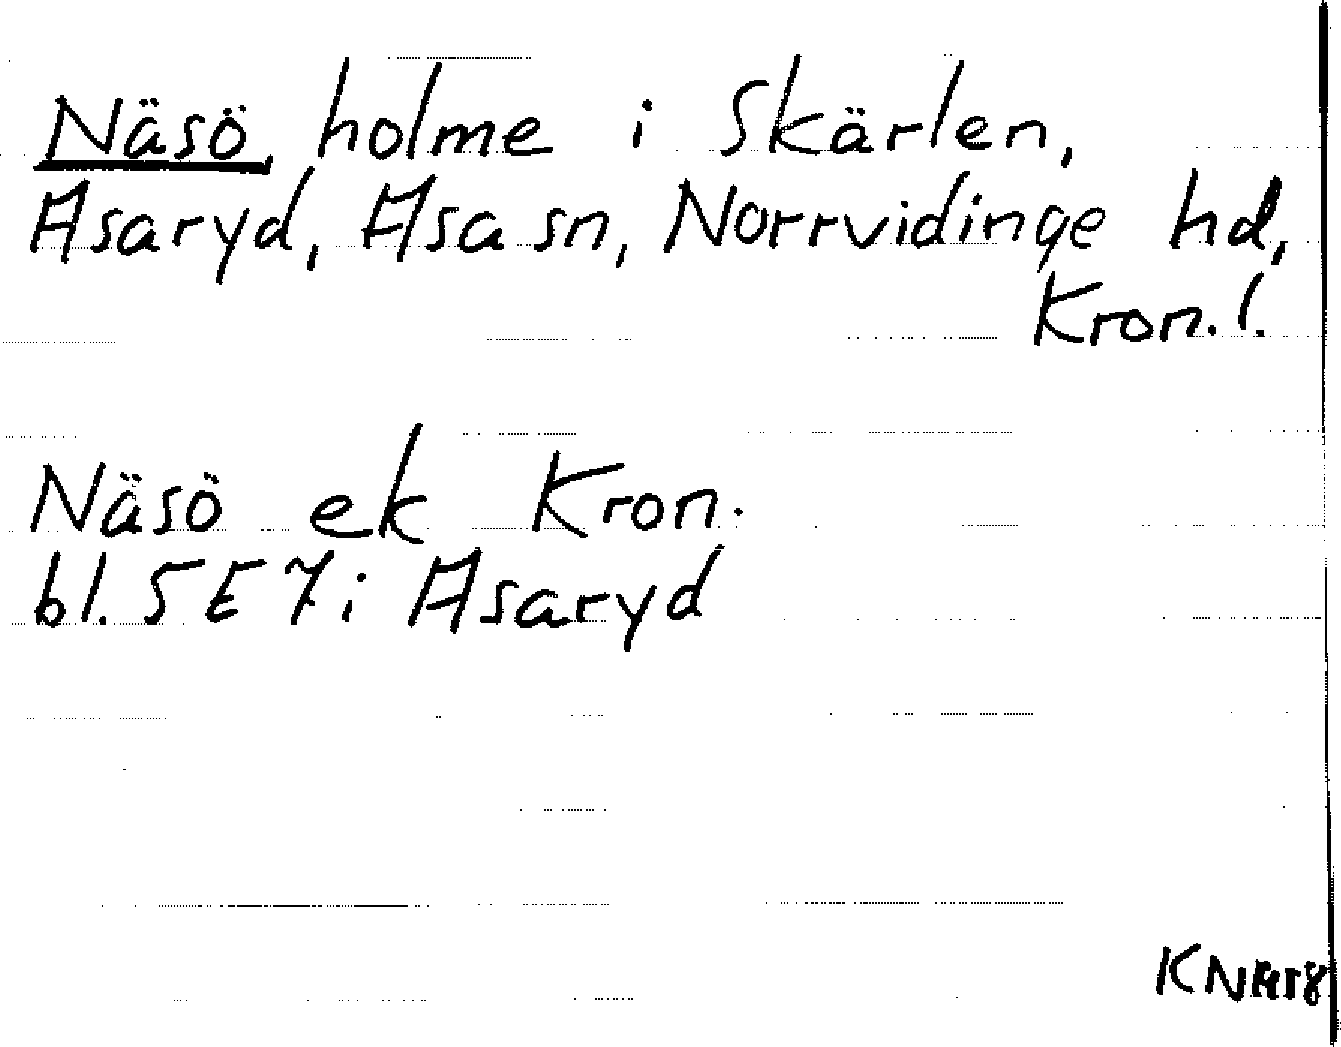 Näsö, holme i Skärlen,
Asaryd, Asa sn, Norrvidinge hd,
Kron. l.
Näsö ek Kron.
bl. 5E7i Asaryd